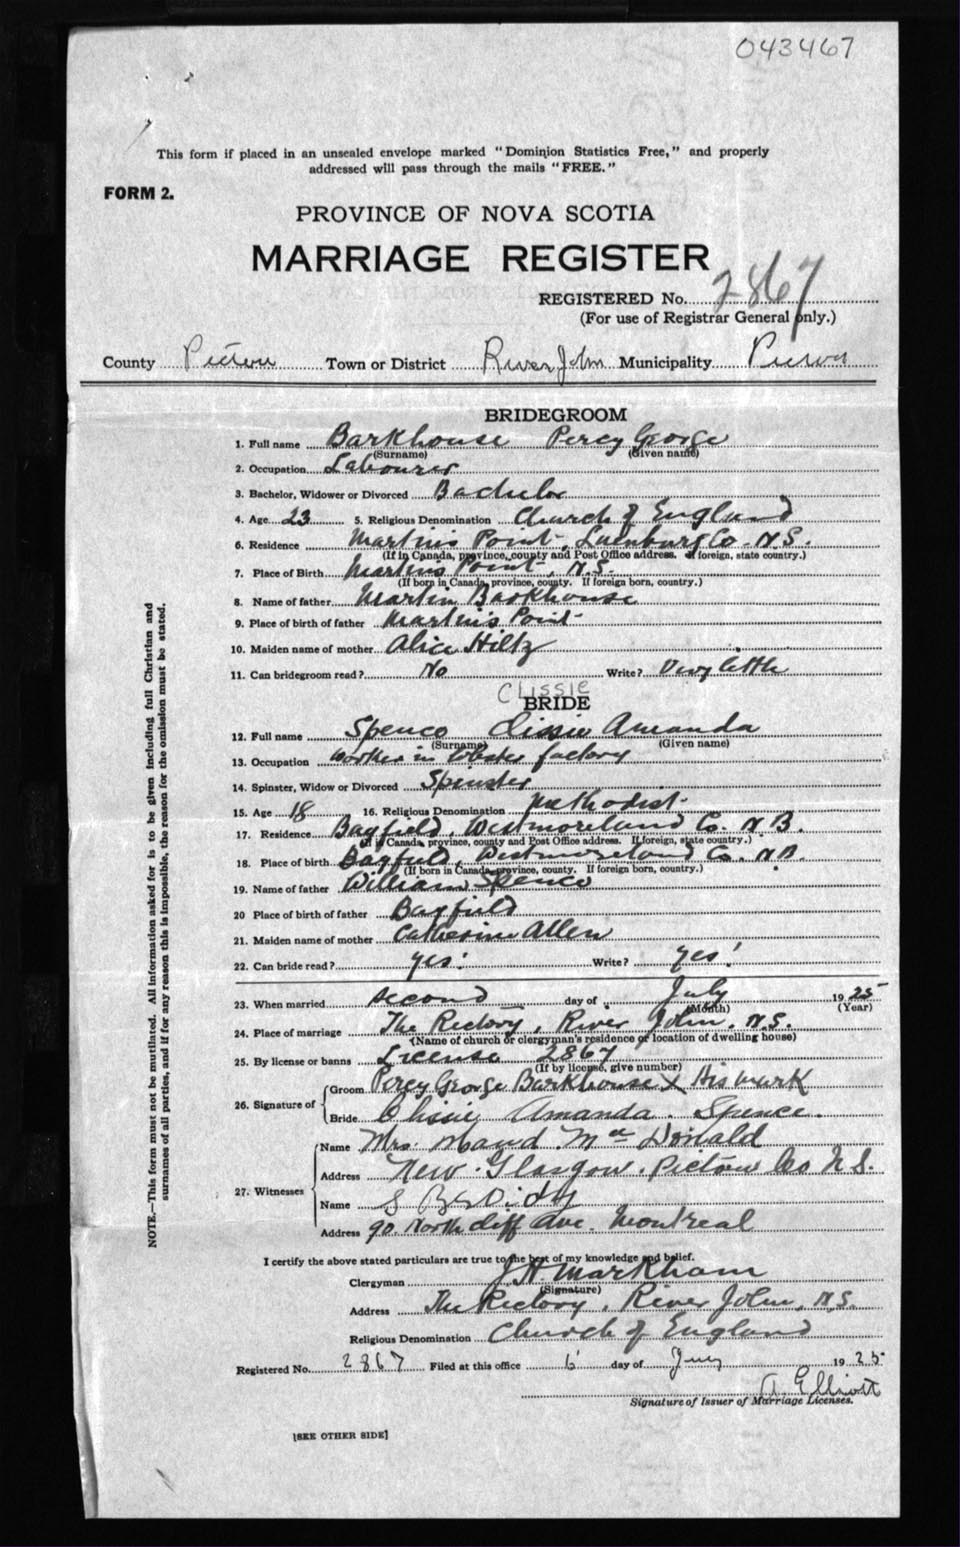 043467
This form if placed in an unsealed envelope marked "Dominion Statistics Free," and properly
addressed will pass through the mails "FREE."
FORM 2.
PROVINCE OF NOVA SCOTIA
MARRIAGE REGISTER
REGISTERED No. 2867
(For use of Registrar General only.)
County Pictou Town or District River John Municipality Pictou
BRIDEGROOM
1. Full name Barkhouse Percy George
(Surname) (Given name)
2. Occupation Labourer
3. Bachelor, Widower or Divorced Bachelor
4. Age 23 5. Religious Denomination Church of England
6. Residence Martin's Point, Lunenburg Co. N.S.
(If in Canada, province, county and Post Office address. If foreign, state country.)
7. Place of Birth Martin's Point, N.S.
(If born in Canada, province, county. If foreign born, country.)
8. Name of father Martin Barkhouse
9. Place of birth of father Martin's Point
10. Maiden name of mother Alice Hiltz
11. Can bridegroom read? No Write? Very little
Clissie
BRIDE
12. Full name Spence Clissie Amanda
(Surname) (Given name)
13. Occupation Worker in lobster factory
14. Spinster, Widow or Divorced Spinster
15. Age 18 16. Religious Denomination Methodist
17. Residence Bayfield, Westmoreland Co. N.B.
(If in Canada, province, county and Post Office address. If foreign, state country.)
18. Place of birth Bayfield, Westmoreland Co. N.B.
(If born in Canada, province, county. If foreign born, country.)
19. Name of father William Spence
20 Place of birth of father Bayfield
21. Maiden name of mother Catherine Allen
22. Can bride read? yes! Write? yes!
23. When married second day of July 1925
(Month) (Year)
24. Place of marriage The Rectory, River John, N.S.
(Name of church or clergyman's residence or location of dwelling house)
25. By license or banns License 2867
(If by license, give number)
26. Signature of
Groom Percy George Barkhouse X His mark
Bride Clissie Amanda. Spence.
27. Witnesses
Name Mrs. Maud McDonald
Address New Glasgow. Pictou Co N.S.
Name S
Address 90 Northcliff Ave. Montreal
I certify the above stated particulars are true to the best of my knowledge and belief.
Clergyman J H Markham
(Signature)
Address The Rectory, River John, N.S.
Religious Denomination Church of England
Registered No. 2867 Filed at this office 6 day of July 1925
A. Elliott
Signature of Issuer of Marriage Licenses.
[SEE OTHER SIDE]
NOTE.—This form must not be mutilated. All information asked for is to be given including full Christian and
surnames of all parties, and if for any reason this is impossible, the reason for the omission must be stated.